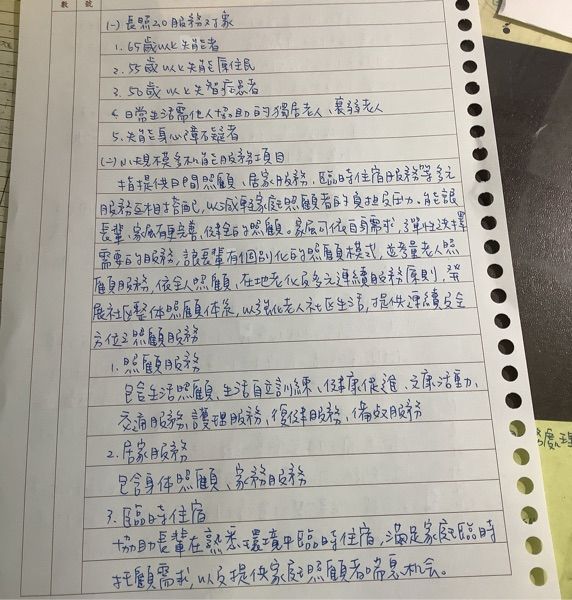 數 號
(一)長照2.0服務對象
1. 65歲以上失能者
2. 55歲以上失能原住民
3. 50歲以上失智症患者
4. 日常生活需他人協助的獨居老人、衰弱老人
5. 失能身心障礙者
(二)小規模多機能服務項目
指提供日間照顧、居家服務、臨時住宿服務等多元
服務互相搭配,以減輕家庭照顧者的負擔壓力,能讓
長輩、家屬有更完善、健全的照顧。家屬可依自身需求,彈性選擇
需要的服務,讓長輩有個別化的照顧模式,並考量老人照
顧服務,依全人照顧、在地老化及多元連續服務原則,發
展社區整体照顧体系,以強化老人社區生活,提供連續性全
方位之照顧服務
1. 照顧服務
包含生活照顧、生活自立訓練、健康促進、文康活動、
交通服務、護理服務、復健服務、備餐服務
2. 居家服務
包含身体照顧、家務服務
3. 臨時住宿
協助長輩在熟悉環境中臨時住宿,滿足家庭臨時
托顧需求,以及提供家庭照顧者喘息機會。
處理